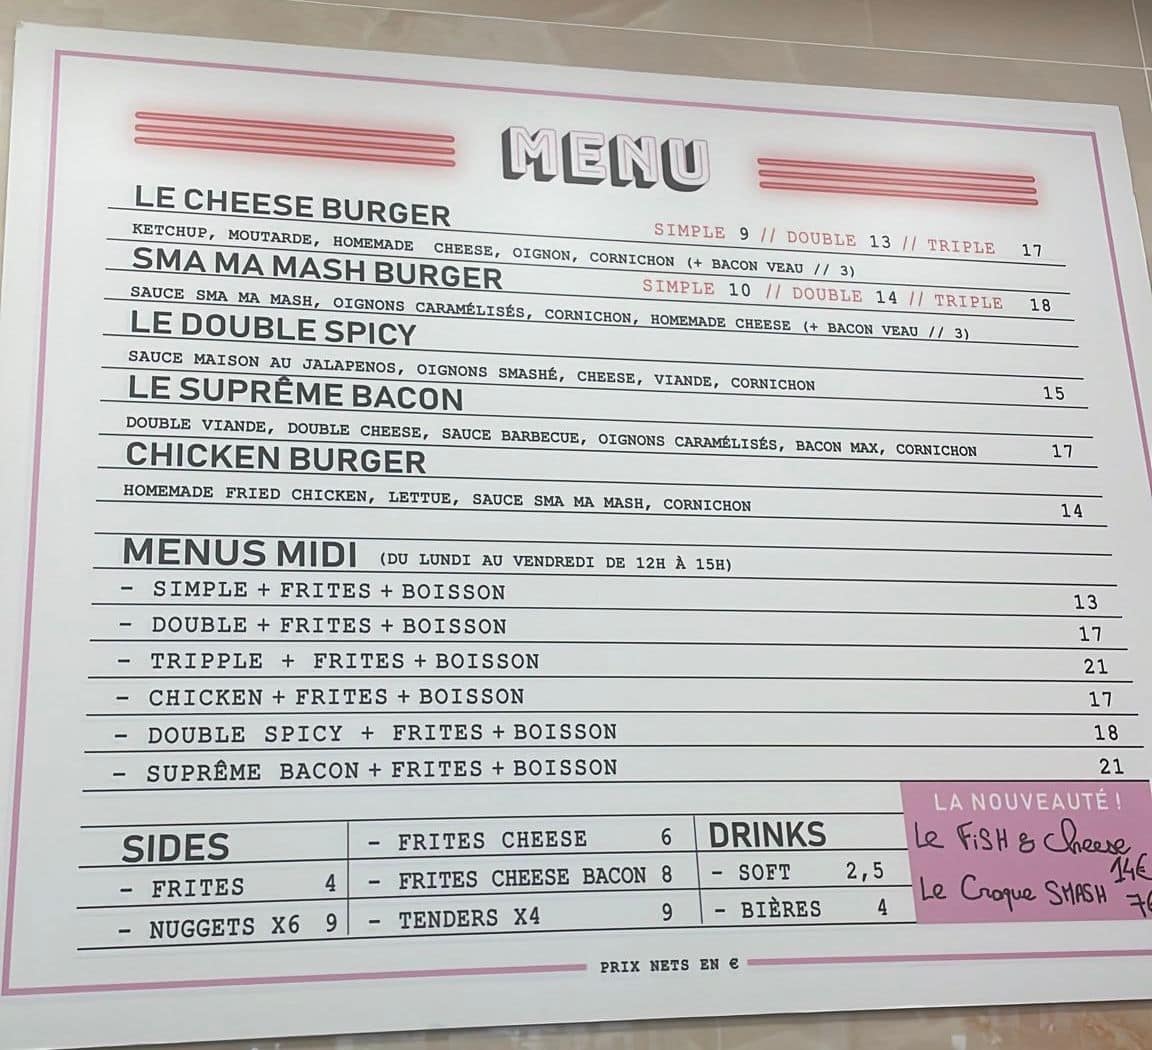 MENU
LE CHEESE BURGER
SIMPLE 9 // DOUBLE 13 // TRIPLE 17
KETCHUP, MOUTARDE, HOMEMADE CHEESE, OIGNON, CORNICHON (+ BACON VEAU // 3)
SMA MA MASH BURGER
SIMPLE 10 // DOUBLE 14 // TRIPLE 18
SAUCE SMA MA MASH, OIGNONS CARAMÉLISÉS, CORNICHON, HOMEMADE CHEESE (+ BACON VEAU // 3)
LE DOUBLE SPICY
SAUCE MAISON AU JALAPENOS, OIGNONS SMASHÉ, CHEESE, VIANDE, CORNICHON 15
LE SUPRÊME BACON
DOUBLE VIANDE, DOUBLE CHEESE, SAUCE BARBECUE, OIGNONS CARAMÉLISÉS, BACON MAX, CORNICHON 17
CHICKEN BURGER
HOMEMADE FRIED CHICKEN, LETTUE, SAUCE SMA MA MASH, CORNICHON 14
MENUS MIDI (DU LUNDI AU VENDREDI DE 12H À 15H)
- SIMPLE + FRITES + BOISSON 13
- DOUBLE + FRITES + BOISSON 17
- TRIPPLE + FRITES + BOISSON 21
- CHICKEN + FRITES + BOISSON 17
- DOUBLE SPICY + FRITES + BOISSON 18
- SUPRÊME BACON + FRITES + BOISSON 21
SIDES
- FRITES 4
- NUGGETS X6 9
- FRITES CHEESE 6
- FRITES CHEESE BACON 8
- TENDERS X4 9
DRINKS
- SOFT 2,5
- BIÈRES 4
LA NOUVEAUTÉ !
Le FiSH & Cheese
14€
Le Croque SMASH 7€
PRIX NETS EN €